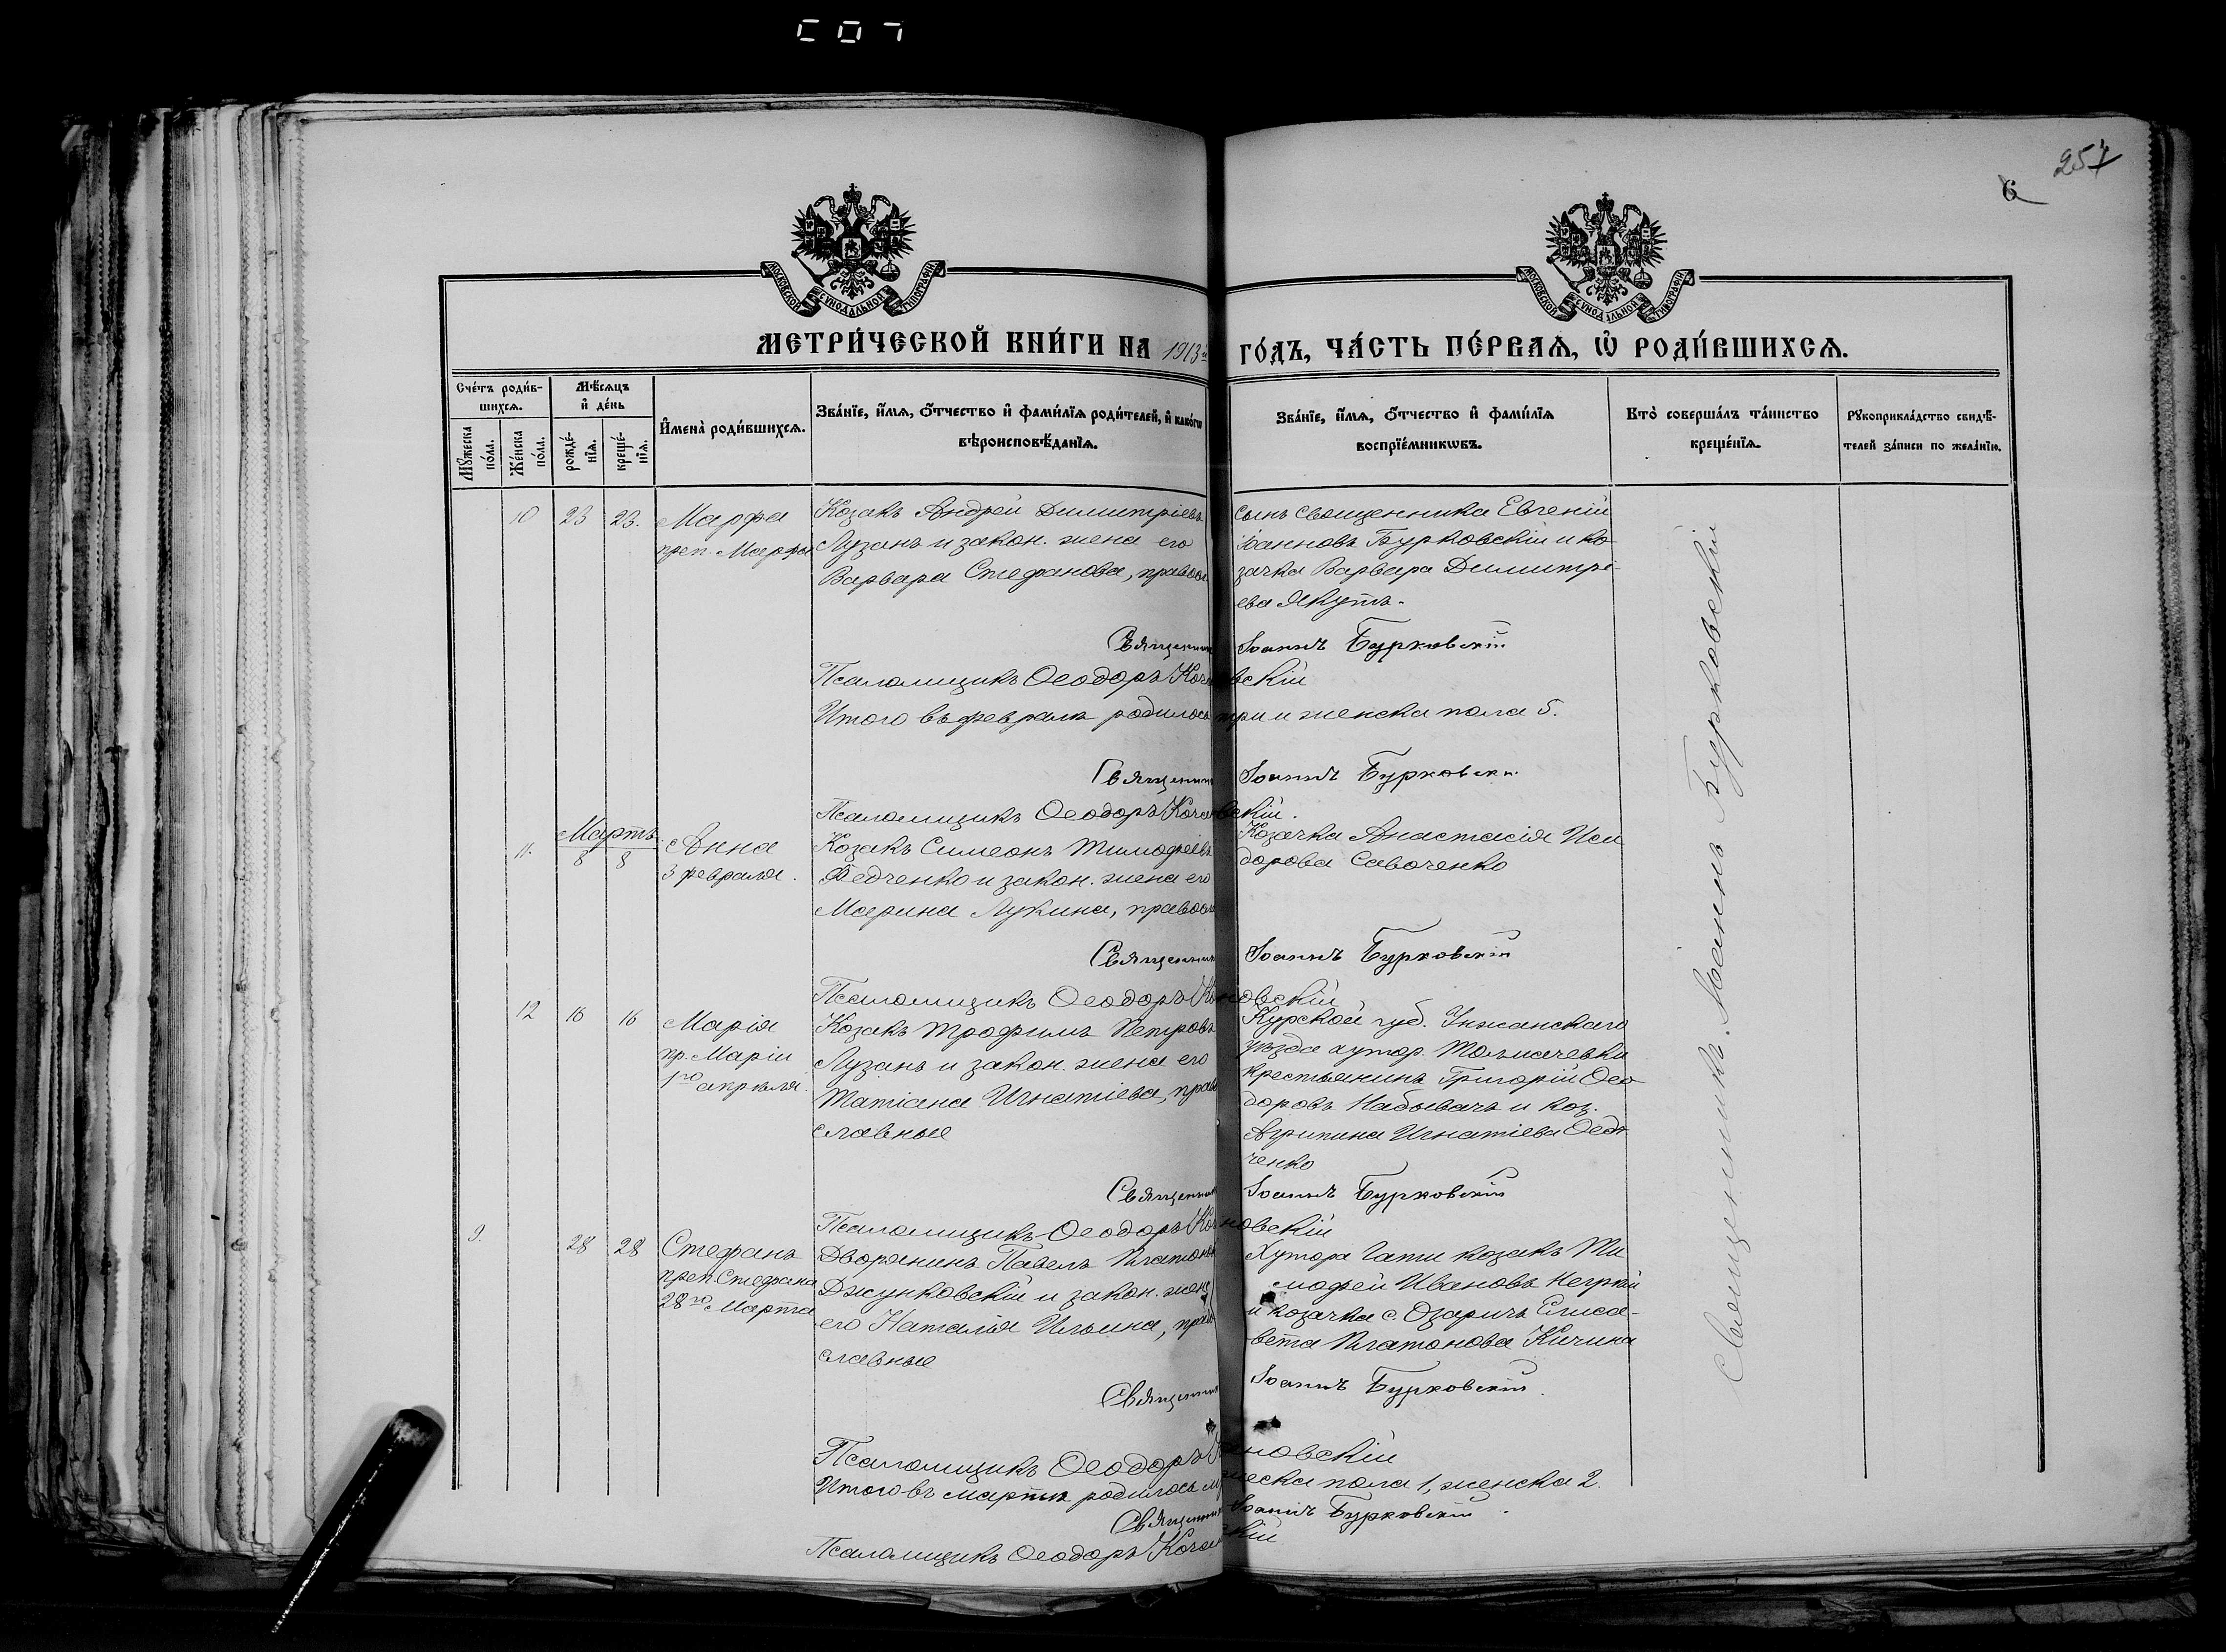 257
6
МОСКОВСКОЙ СѴНОДАЛЬНОЙ ТИПОГРАФІИ
МОСКОВСКОЙ СѴНОДАЛЬНОЙ ТИПОГРАФІИ
МЕТРИ́ЧЕСКОЙ КНИ́ГИ НА 1913й ГО́ДЪ, ЧА́СТЬ ПЕ́РВАѦ, Ѡ РОДИ́ВШИХСѦ.
Сче́тъ роди́в-
шихсѧ.
Мꙋ́жеска по́ла.
Же́нска по́ла.
Мѣ́сѧцъ и҆ де́нь
рожде́-
нїѧ.
креще́-
нїѧ.
И҆мена̀ роди́вшихсѧ.
Зва́нїе, и҆́мѧ, ѻ҆́тчество и҆ фами́лїѧ роди́телей, и҆ како́гѡ
вѣроисповѣ́данїѧ.
Зва́нїе, и҆́мѧ, ѻ҆́тчество и҆ фами́лїѧ
воспрїе́мникѡвъ.
Кто̀ соверша́лъ та́инство
креще́нїѧ.
Рꙋкоприкла́дство свидѣ́-
телей за́писи по жела́нїю.
10 23 23. Марфа
преп. Марфы
Козакъ Андрей Димитріевъ
Лузанъ и закон. жена его
Варвара Стефанова, правосл
Сынъ священника Евгеній
Іванновъ Бурковскій и ко
зачка Варвара Димитрі-
ева Якутъ.
Священник Іоаннъ Бурковскій
Псаломщикъ Ѳеодоръ Кочановскій
Итого въ февралѣ родилось три и женска пола 5.
Священник Іоаннъ Бурковскій
Псаломщикъ Ѳеодоръ Кочановскій.
Мартъ
11. 8 8 Анна
3 февраля.
Козакъ Симеонъ Тимофеевъ
Ѳедченко и закон. жена его
Марина Лукина, правосл
Козачка Анастасія Иси
дорова Савоченко
Священник Іоаннъ Бурковскій
Псаломщикъ Ѳеодоръ Кочановскій
12 16 16 Марія
пр. Маріи
1го апрѣля.
Козакъ Трофимъ Петровъ
Лузанъ и закон. жена его
Татіана Игнатіева, право
славные
Курской губ.
уѣзда хутор. Толмачевки
крестьянинъ Григорій Ѳео
доровъ Набывачъ и коз.
Агрипина Игнатіева Ѳед
ченко
Священник Іоаннъ Бурковскій
Псаломщикъ Ѳеодоръ Кочановскій
9. 28 28 Стефанъ
преп. Стефана
28го Марта
Дворянинъ Павелъ Платоновъ
Джунковскій и закон. жена
его Наталія Ильина, право
славные
Хутора Гати козакъ Ти
мофей Ивановъ
и козачка с. Озаричъ Елиса-
вета Платонова Кичина
Священник Іоаннъ Бурковскій.
Псаломщикъ Ѳеодоръ Кочановскій
Итого въ мартѣ родилось мужеска пола 1, женска 2.
Священник Іоаннъ Бурковскій
Псаломщикъ Ѳеодоръ Кочановскій
Священникъ Іоаннъ Бурковскій